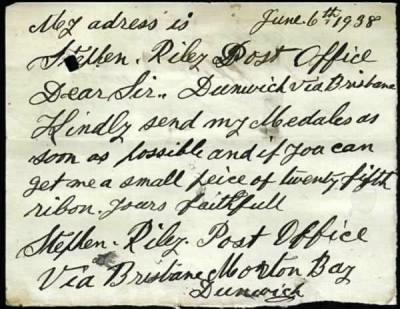 My adress is June 6th 1938
Stephen. Riley Post Office
Dear Sir., Dunwich via Brisbane
Kindly send my Medales as
soon as possible and if you can
get me a small peice of twenty fifth
ribon. yours faithfull
Stephen. Riley. Post Office
Via Brisbane Morton Bay
Dunwich